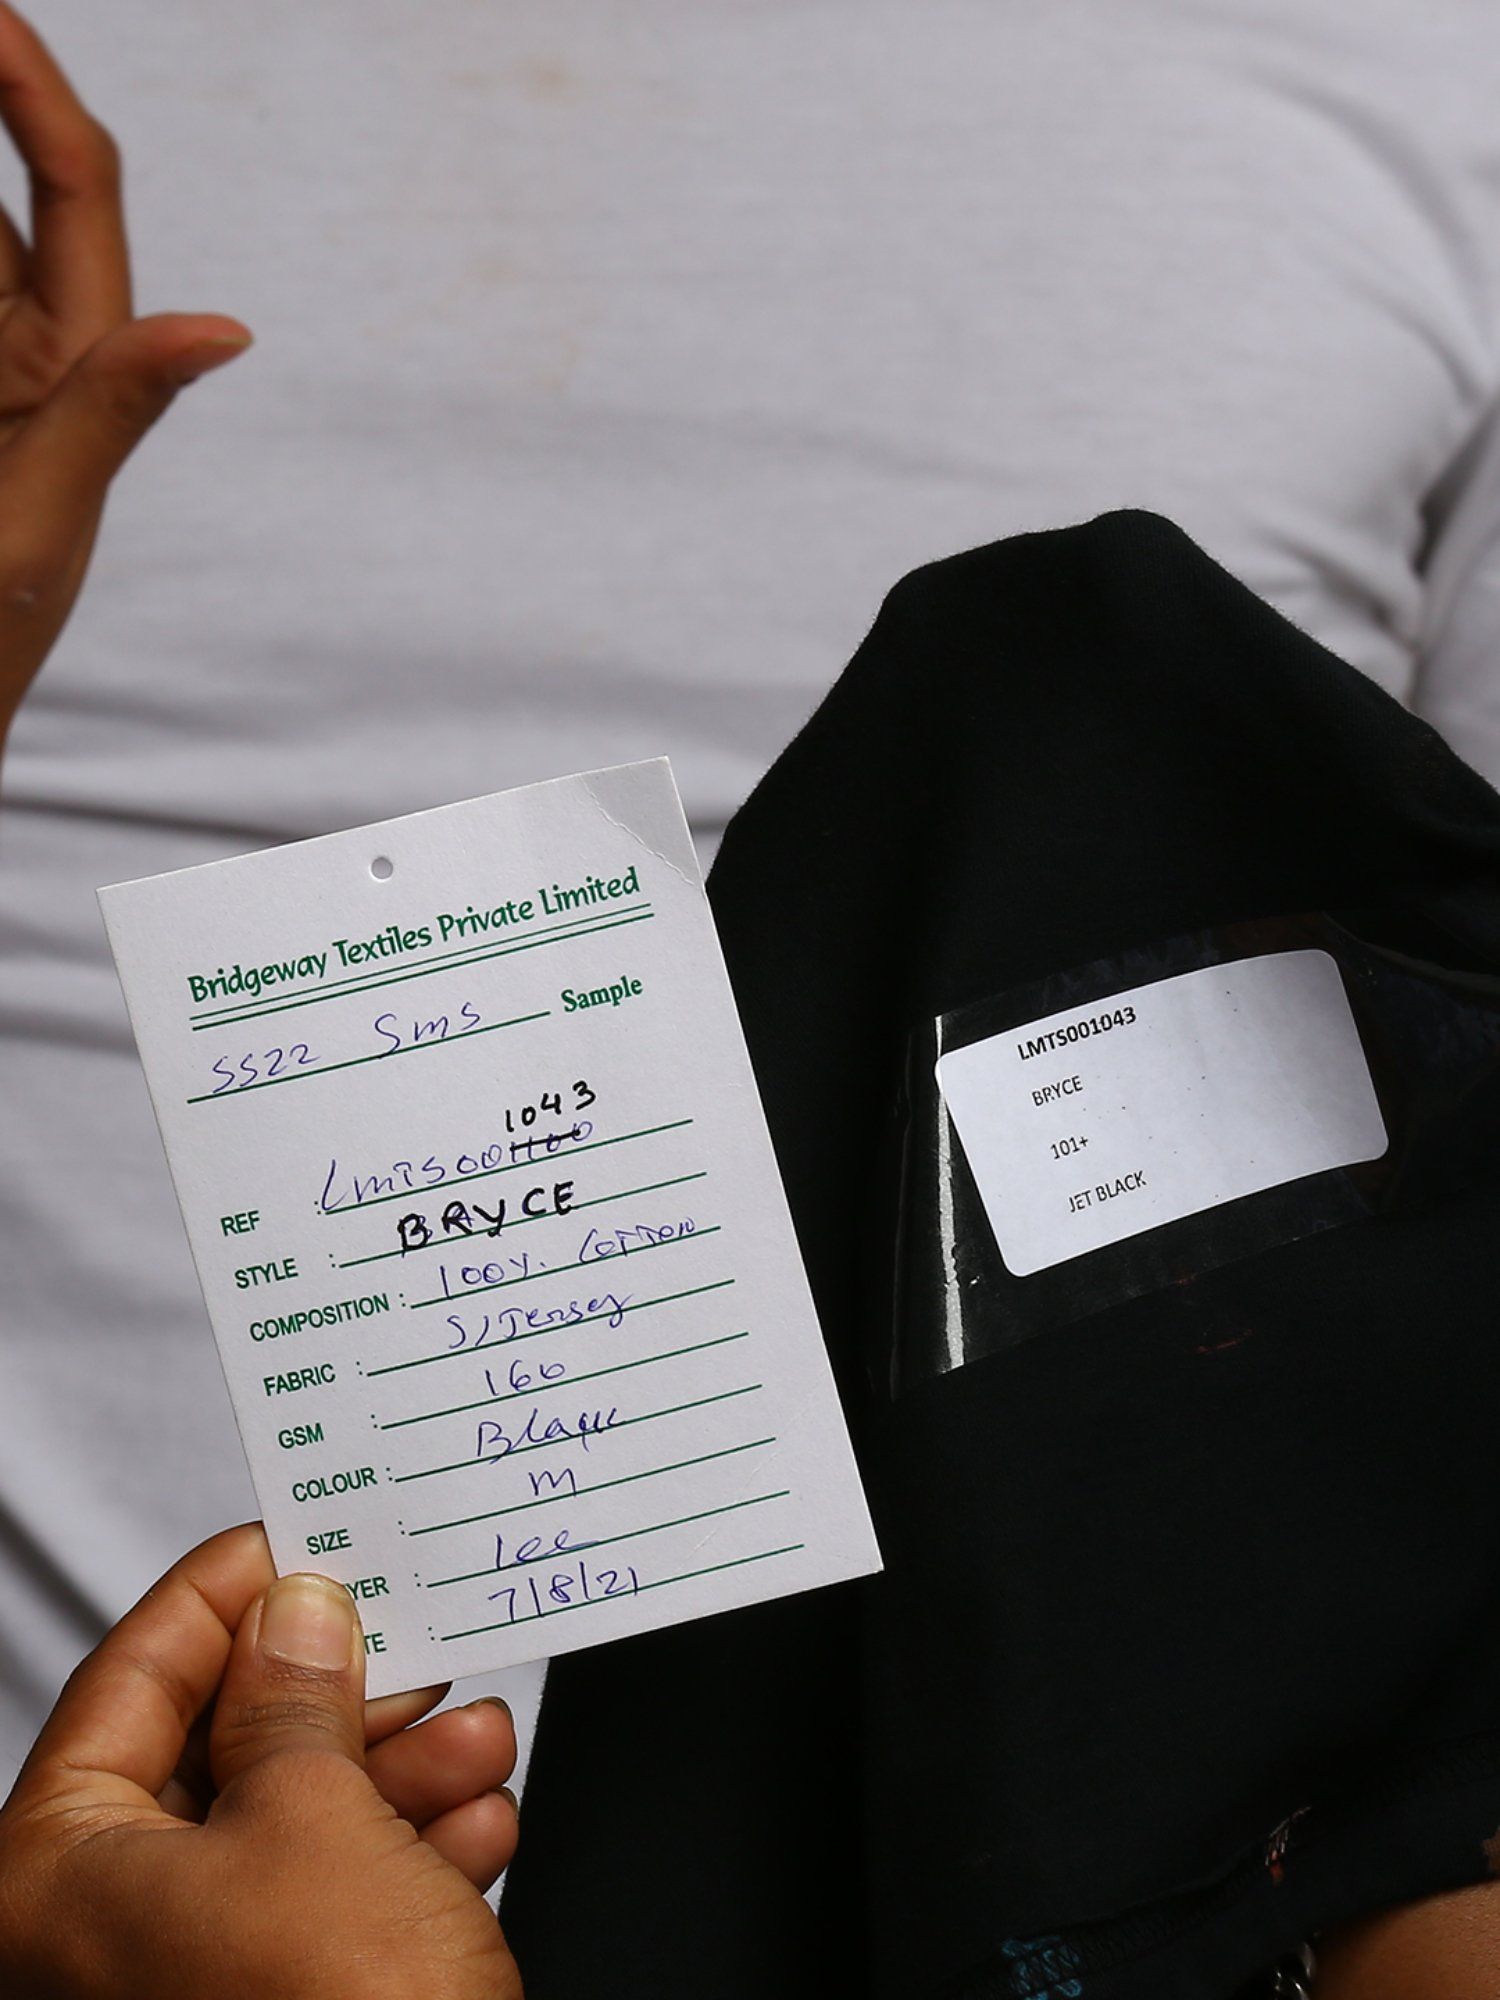 Bridgeway Textiles Private Limited
SS22 Sms Sample
1043
REF : LMTS001100
STYLE : BRYCE
COMPOSITION : 100%. Cotton
FABRIC : S/Jersey
GSM : 160
COLOUR : Black
SIZE : M
YER : Lee
TE : 7/8/21
LMTS001043
BRYCE
101+
JET BLACK